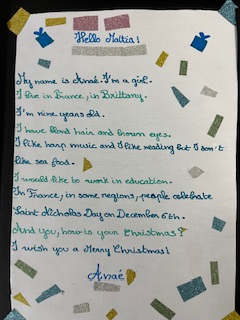 Hello Mattia!
My name is Anaé. I'm a girl.
I live in France, in Brittany.
I'm nine years old.
I have blond hair and brown eyes.
I like harp music and I like reading but I don't
like sea food.
I would like to work in education.
In France, in some regions, people celebrate
Saint Nicholas Day on December 6th.
And you, how is your Christmas?
I wish you a Merry Christmas!
Anaé